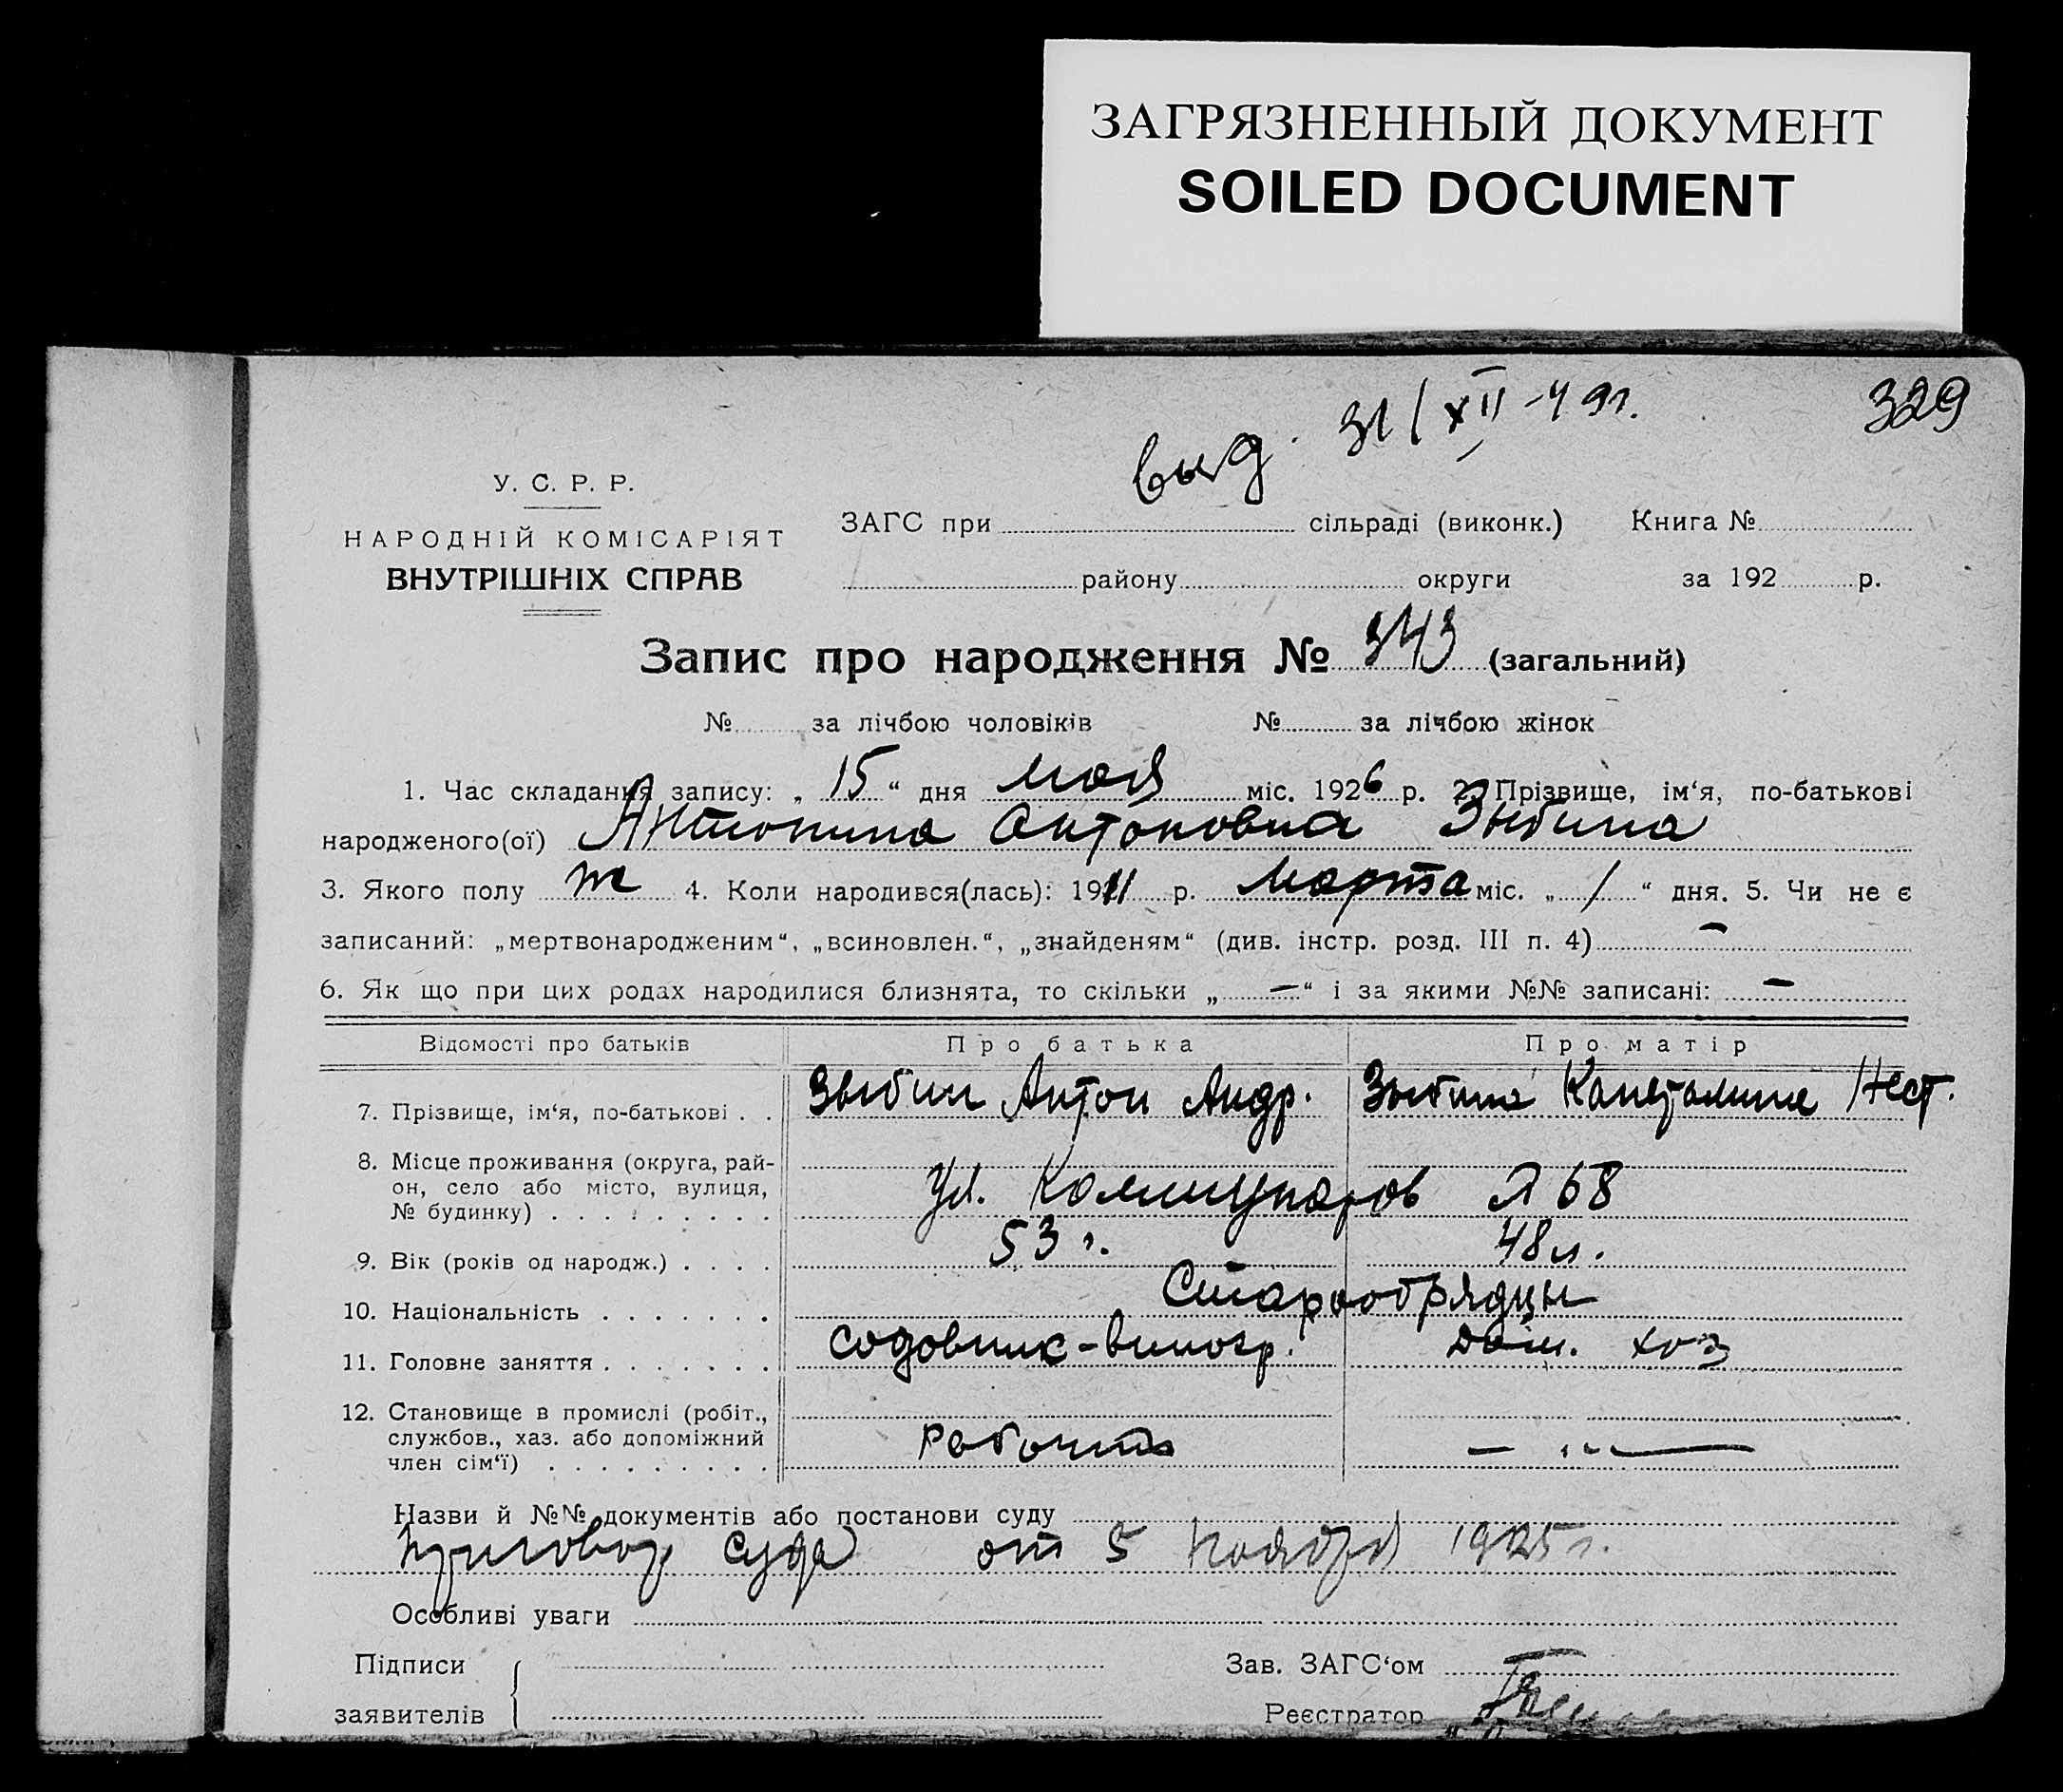 ЗАГРЯЗНЕННЫЙ ДОКУМЕНТ
SOILED DOCUMENT
329
выд. 31/XII-49г.
У. С. Р. Р.
НАРОДНІЙ КОМІСАРІЯТ
ВНУТРІШНІХ СПРАВ
ЗАГС при сільраді (виконк.) Книга №
району округи за 192 р.
Запис про народження № 343 (загальний)
№ за лічбою чоловіків № за лічбою жінок
1. Час складання запису: „ 15 “ дня мая міс. 1926 р. 2. Прізвище, ім‘я, по-батькові
народженого(ої) Антонина Антоновна Зыбина
3. Якого полу ж 4. Коли народився(лась): 1911 р. марта міс. „ 1 “ дня. 5. Чи не є
записаний: „мертвонародженим“, „всиновлен.“, „знайденям“ (див. інстр. розд. III п. 4) —
6. Як що при цих родах народилися близнята, то скільки „ — “ і за якими №№ записані: —
Відомості про батьків Про батька Про матір
7. Прізвище, ім‘я, по-батькові . . Зыбин Антон Андр. Зыбина Капетолина Нест.
8. Місце проживання (округа, рай-
он, село або місто, вулиця,
№ будинку) . . . . . . . . . Ул. Коммунаров 68
9. Вік (років од народж.) . . . . 53 г. 48 л.
10. Національність . . . . . . . Старообрядцы
11. Головне заняття . . . . . . . садовник-виногр. Дом. хоз
12. Становище в промислі (робіт.,
службов., хаз. або допоміжний
член сім‘ї) . . . . . . . . . — „ —
Назви й №№ документів або постанови суду
приговор суда от 5 ноября 1925 г.
Особливі уваги
Підписи
заявителів
Зав. ЗАГС‘ом
Реєстратор